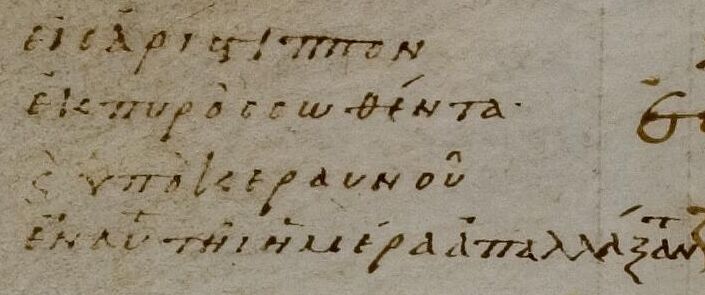 εἰς ἀρίστιππον
ἐκ πυρὸς σωθέντα·
ϗ ὑπὸ κεραυνοῦ
ἐν αὐτῆι ἡμέρα ἀπαλλάξαντ